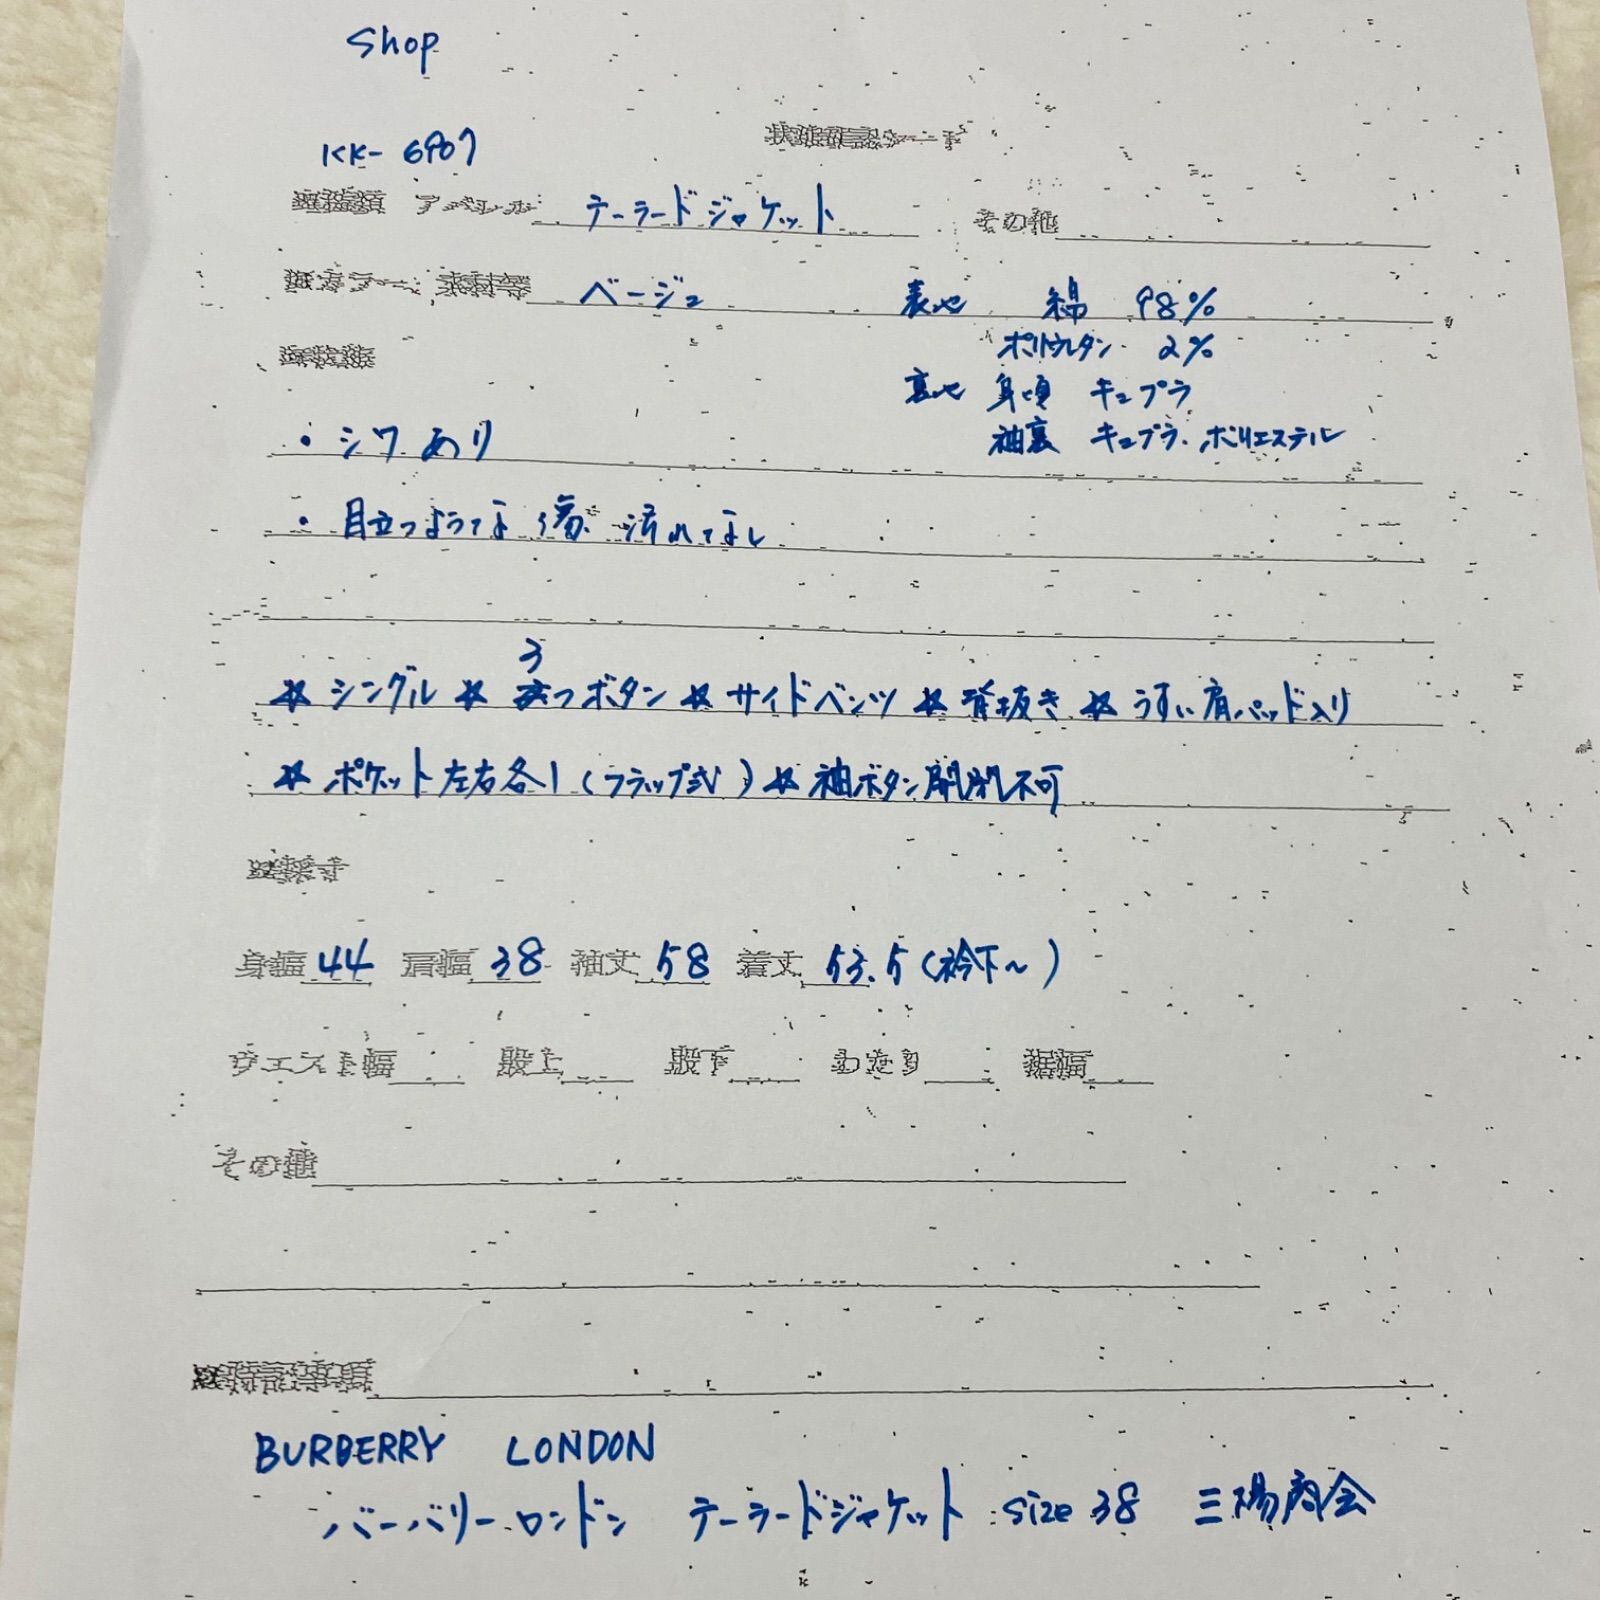 Shop
状態確認シート
KK-6907
アパレル テーラードジャケット その他
カラー、素材等 ベージュ 表地 綿 98%
ポリウレタン 2%
裏地 身頃 キュプラ
・シワあり 袖裏 キュプラ、ポリエステル
・目立つような傷、汚れなし
3
☆シングル ☆つボタン ☆サイドベンツ ☆背抜き ☆うすい肩パッド入り
☆ポケット左右各1(フラップ式) ☆袖ボタン開閉不可
採寸
身幅 44 肩幅 38 袖丈 58 着丈 53.5(衿下~)
ウエスト幅 股上 股下 わたり 裾幅
その他
特記事項
BURBERRY LONDON
バーバリーロンドン テーラードジャケット size 38 三陽商会